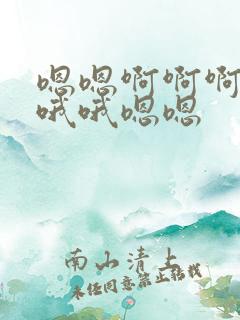 嗯嗯啊啊啊
哦哦嗯嗯
南山清上
未经同意禁止转载